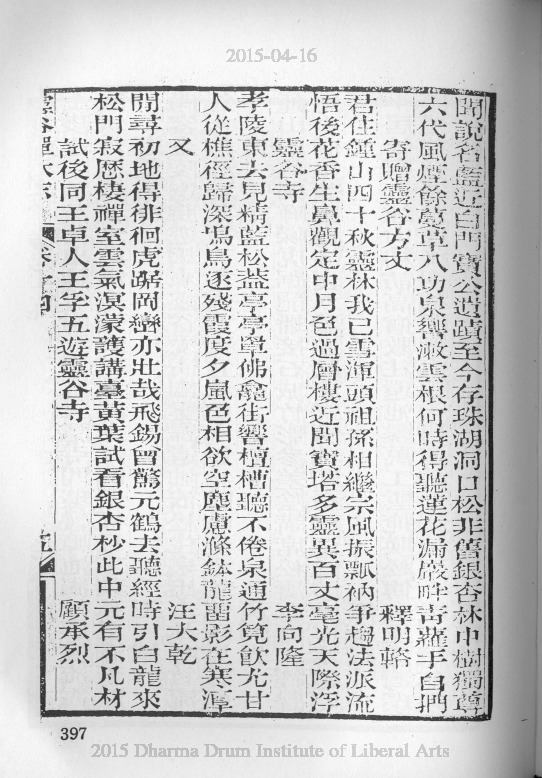 2015-04-16
聞說名藍近白門寶公遺蹟至今存珠湖洞口松非舊銀杏林中樹獨尊
六代風煙餘蔓草八功泉響漱雲根何時得聽蓮花漏巖畔青蘿手自捫
寄贈靈谷方丈 釋明輅
君住鍾山四十秋靈林我已雪渾頭祖孫相繼宗風振瓢衲爭趨法派流
悟後花香生鼻觀定中月色過層樓近聞寶塔多靈異百丈毫光天際浮
靈谷寺 李向隆
孝陵東去見精藍松蓋亭亭罩佛龕街響檀槽聽不倦泉通竹筧飲尤甘
人從樵徑歸深塢鳥逐殘霞度夕嵐色相欲空塵慮滌鉢龍留影在寒潭
又 汪大乾
閒尋初地得徘徊虎踞岡巒亦壯哉飛錫曾驚元鶴去聽經時引白龍來
松門寂歷棲禪室雲氣溟濛護講臺黃葉試看銀杏杪此中元有不凡材
試後同王卓人王孚五遊靈谷寺 顧承烈
靈谷禪林志 卷十四
397
2015 Dharma Drum Institute of Liberal Arts